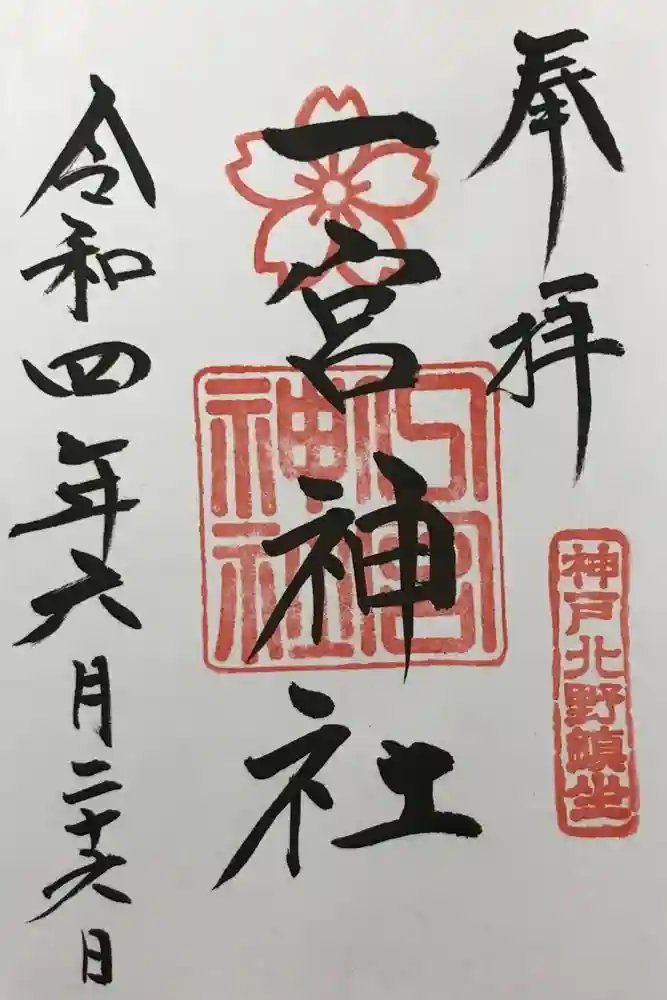 奉拝
神戸北野鎮坐
一宮神社
令和四年六月二十六日